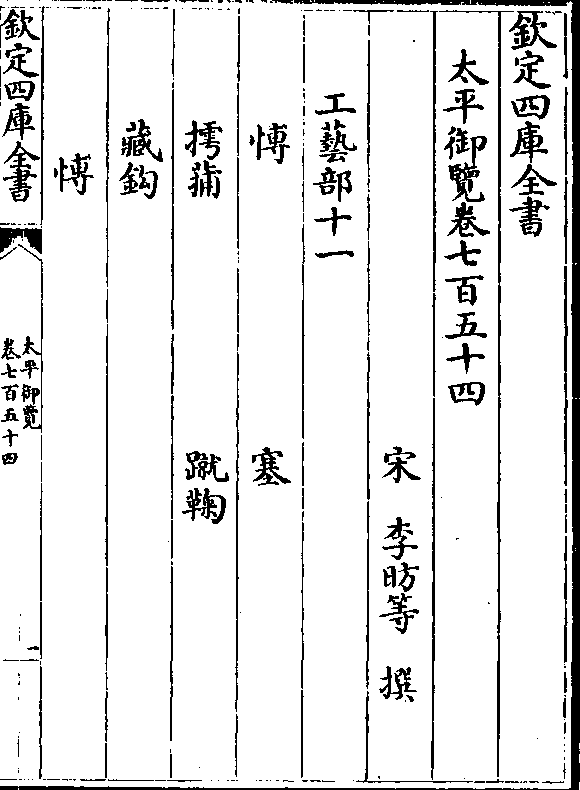 欽定四庫全書
太平御覽卷七百五十四
宋 李昉等 撰
工藝部十一
愽 塞
摴蒱 蹴鞠
藏鈎
愽
欽定四庫全書
太平御覽
卷七百五十四
一